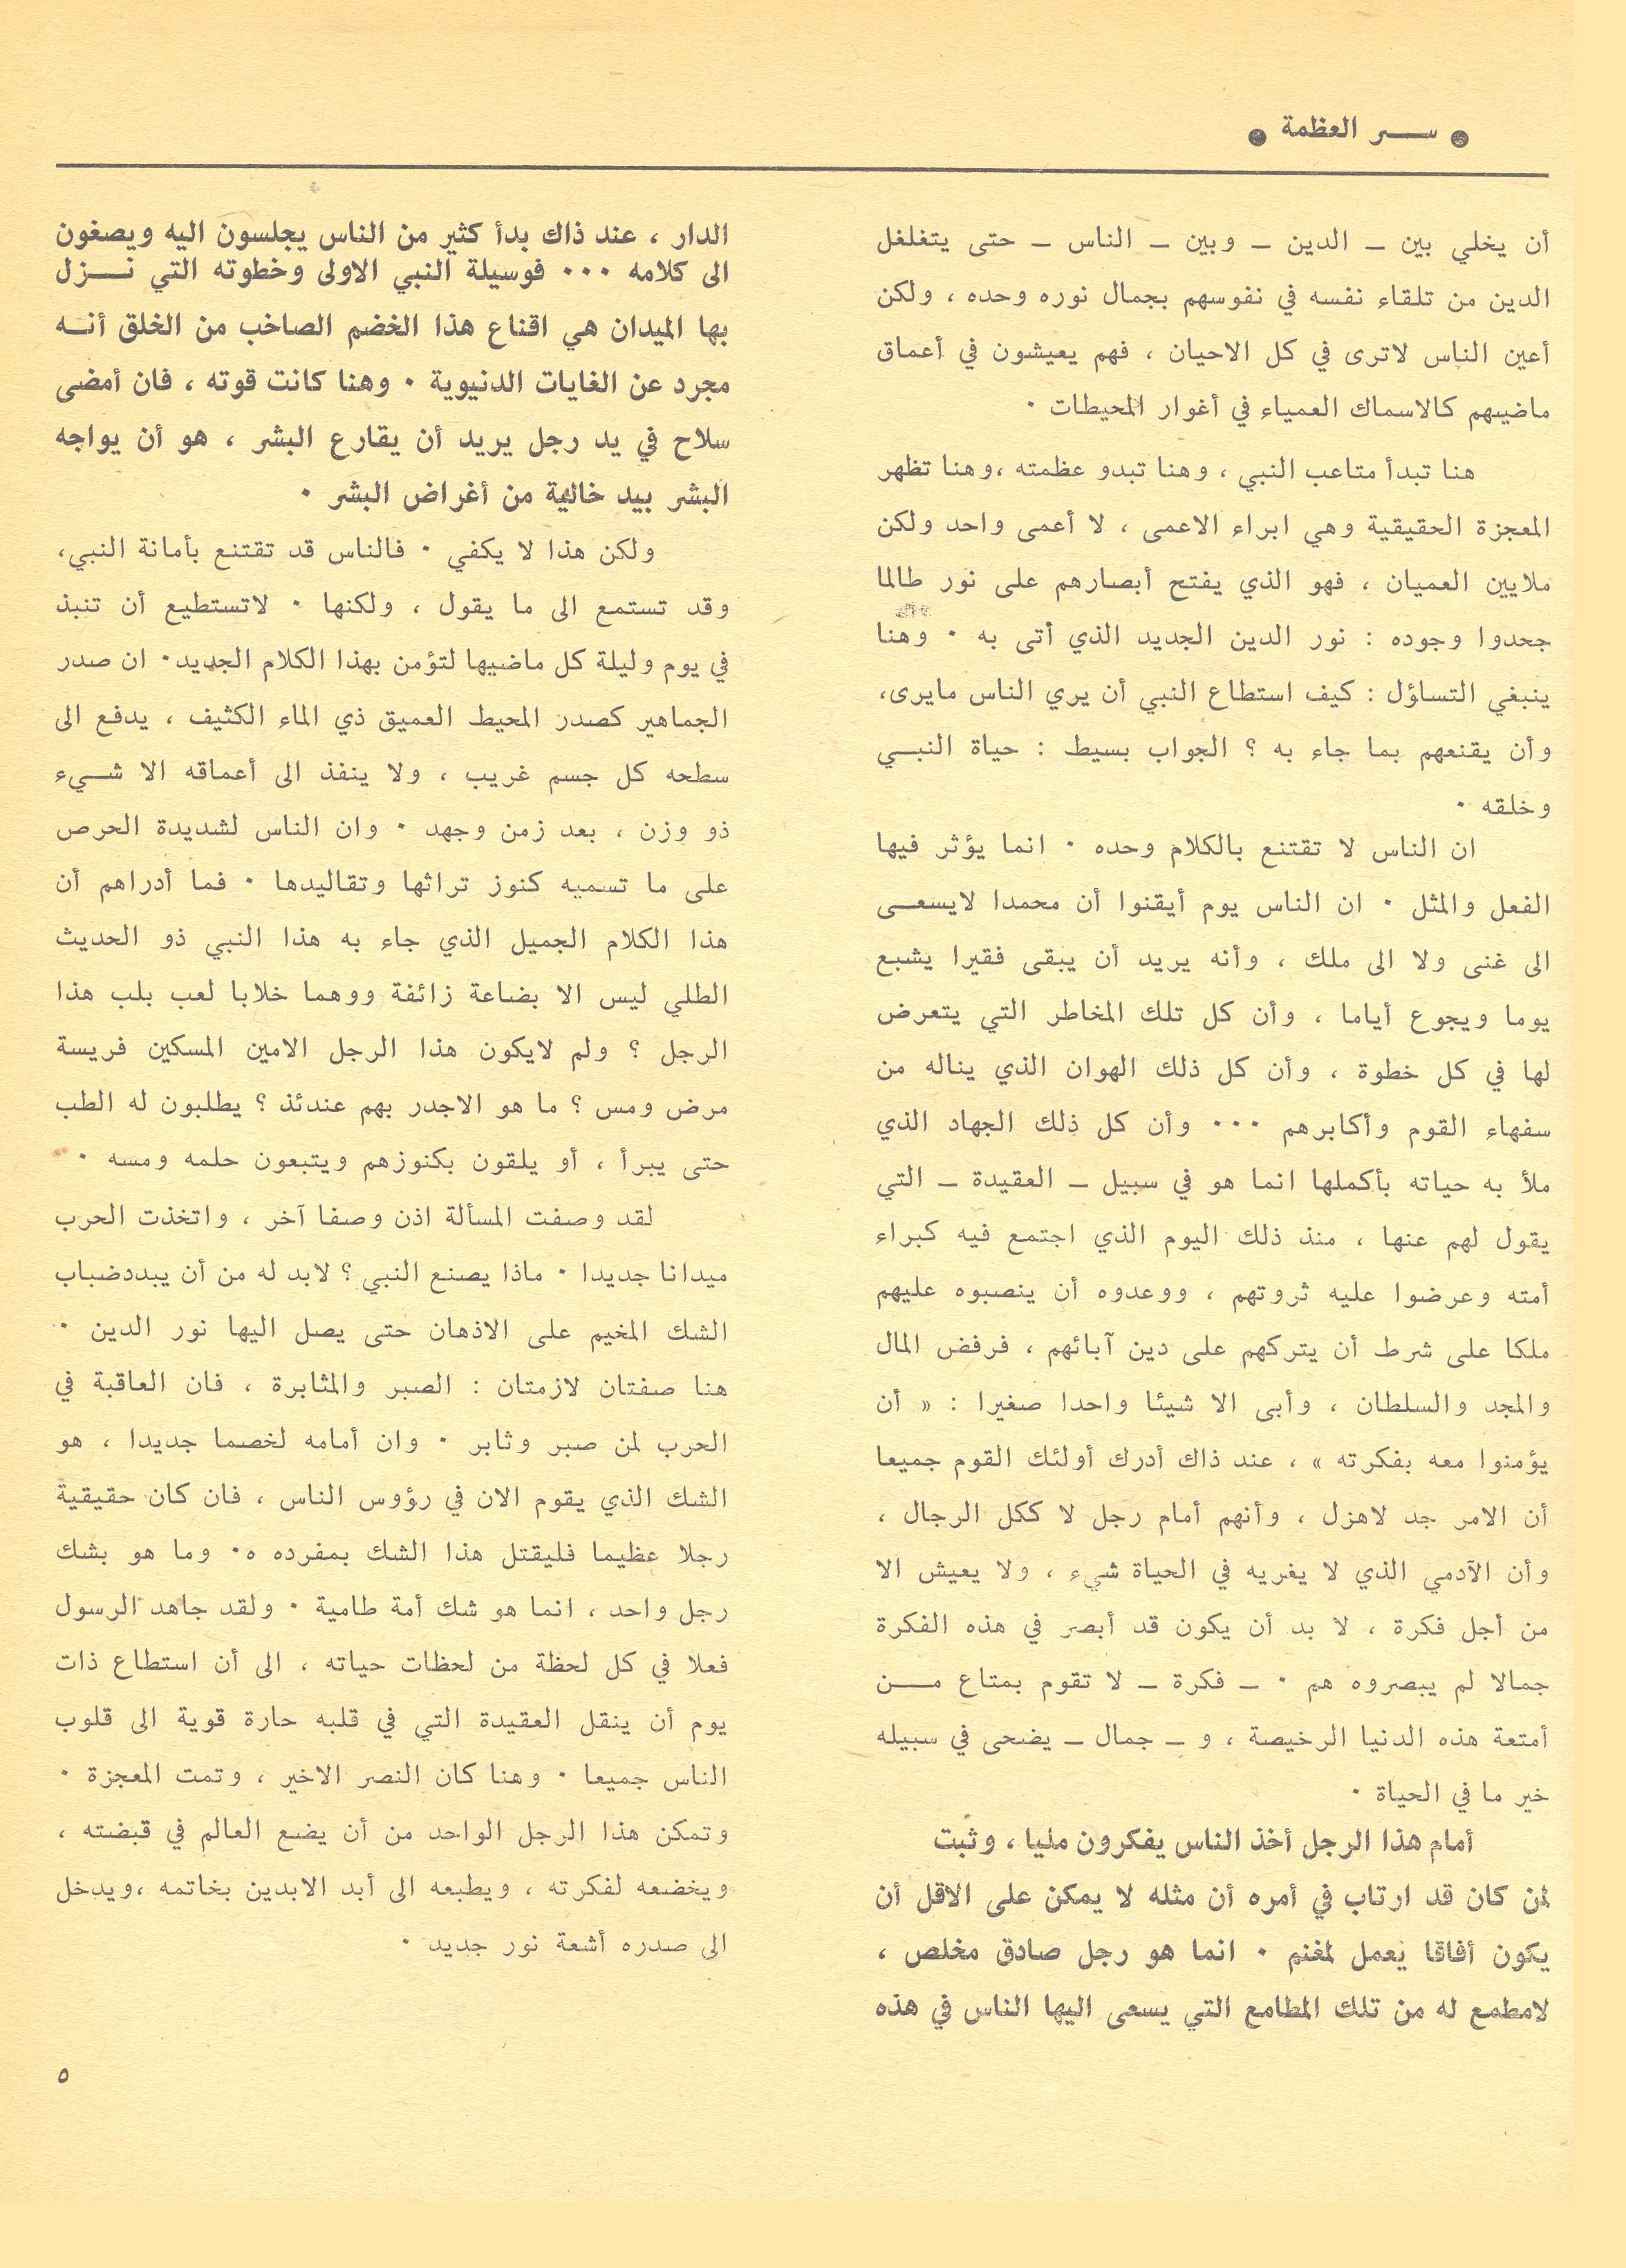 ● ســر العظمة ●
أن يخلي بين ــ الدين ــ وبين ــ الناس ــ حتى يتغلغل
الدين من تلقاء نفسه في نفوسهم بجمال نوره وحده ، ولكن
أعين الناس لاترى في كل الاحيان ، فهم يعيشون في أعماق
ماضيهم كالاسماك العمياء في أغوار المحيطات ٠
هنا تبدأ متاعب النبي ، وهنا تبدو عظمته ،وهنا تظهر
المعجزة الحقيقية وهي ابراء الاعمى ، لا أعمى واحد ولكن
ملايين العميان ، فهو الذي يفتح أبصارهم على نور طالما
جحدوا وجوده : نور الدين الجديد الذي أتى به ٠ وهنا
ينبغي التساؤل : كيف استطاع النبي أن يري الناس مايرى،
وأن يقنعهم بما جاء به ؟ الجواب بسيط : حياة النبــي
وخلقه ٠
ان الناس لا تقتنع بالكلام وحده ٠ انما يؤثر فيها
الفعل والمثل ٠ ان الناس يوم أيقنوا أن محمدا لايسعــى
الى غنى ولا الى ملك ، وأنه يريد أن يبقى فقيرا يشبع
يوما ويجوع أياما ، وأن كل تلك المخاطر التي يتعرض
لها في كل خطوة ، وأن كل ذلك الهوان الذي يناله من
سفهاء القوم وأكابرهم ٠٠٠ وأن كل ذلك الجهاد الذي
ملأ به حياته بأكملها انما هو في سبيل ــ العقيدة ــ التي
يقول لهم عنها ، منذ ذلك اليوم الذي اجتمع فيه كبراء
أمته وعرضوا عليه ثروتهم ، ووعدوه أن ينصبوه عليهم
ملكا على شرط أن يتركهم على دين آبائهم ، فرفض المال
والمجد والسلطان ، وأبى الا شيئا واحدا صغيرا : « أن
يؤمنوا معه بفكرته » ، عند ذاك أدرك أولئك القوم جميعا
أن الامر جد لاهزل ، وأنهم أمام رجل لا ككل الرجال ،
وأن الآدمي الذي لا يغريه في الحياة شيء ، ولا يعيش الا
من أجل فكرة ، لا بد أن يكون قد أبصر في هذه الفكرة
جمالا لم يبصروه هم ٠ ــ فكرة ــ لا تقوم بمتاع مــن
أمتعة هذه الدنيا الرخيصة ، و ــ جمال ــ يضحى في سبيله
خير ما في الحياة ٠
أمام هذا الرجل أخذ الناس يفكرون مليا ، وثبت
لمن كان قد ارتاب في أمره أن مثله لا يمكن على الاقل أن
يكون أفاقا يعمل لمغنم ٠ انما هو رجل صادق مخلص ،
لامطمع له من تلك المطامع التي يسعى اليها الناس في هذه
الدار ، عند ذاك بدأ كثير من الناس يجلسون اليه ويصغون
الى كلامه ٠٠٠ فوسيلة النبي الاولى وخطوته التي نــزل
بها الميدان هي اقناع هذا الخضم الصاخب من الخلق أنــه
مجرد عن الغايات الدنيوية ٠ وهنا كانت قوته ، فان أمضى
سلاح في يد رجل يريد أن يقارع البشر ، هو أن يواجه
البشر بيد خالية من أغراض البشر ٠
ولكن هذا لا يكفي ٠ فالناس قد تقتنع بأمانة النبي،
وقد تستمع الى ما يقول ، ولكنها ٠ لاتستطيع أن تنبذ
في يوم وليلة كل ماضيها لتؤمن بهذا الكلام الجديد٠ ان صدر
الجماهير كصدر المحيط العميق ذي الماء الكثيف ، يدفع الى
سطحه كل جسم غريب ، ولا ينفذ الى أعماقه الا شــيء
ذو وزن ، بعد زمن وجهد ٠ وان الناس لشديدة الحرص
على ما تسميه كنوز تراثها وتقاليدها ٠ فما أدراهم أن
هذا الكلام الجميل الذي جاء به هذا النبي ذو الحديث
الطلي ليس الا بضاعة زائفة ووهما خلابا لعب بلب هذا
الرجل ؟ ولم لايكون هذا الرجل الامين المسكين فريسة
مرض ومس ؟ ما هو الاجدر بهم عندئذ ؟ يطلبون له الطب
حتى يبرأ ، أو يلقون بكنوزهم ويتبعون حلمه ومسه ٠
لقد وصفت المسألة اذن وصفا آخر ، واتخذت الحرب
ميدانا جديدا ٠ ماذا يصنع النبي ؟ لابد له من أن يبددضباب
الشك المخيم على الاذهان حتى يصل اليها نور الدين ٠
هنا صفتان لازمتان : الصبر والمثابرة ، فان العاقبة في
الحرب لمن صبر وثابر ٠ وان أمامه لخصما جديدا ، هو
الشك الذي يقوم الان في رؤوس الناس ، فان كان حقيقية
رجلا عظيما فليقتل هذا الشك بمفرده ٥٠ وما هو بشك
رجل واحد ، انما هو شك أمة طامية ٠ ولقد جاهد الرسول
فعلا في كل لحظة من لحظات حياته ، الى أن استطاع ذات
يوم أن ينقل العقيدة التي في قلبه حارة قوية الى قلوب
الناس جميعا ٠ وهنا كان النصر الاخير ، وتمت المعجزة ٠
وتمكن هذا الرجل الواحد من أن يضع العالم في قبضته ،
ويخضعه لفكرته ، ويطبعه الى أبد الابدين بخاتمه ،ويدخل
الى صدره أشعة نور جديد ٠
٥